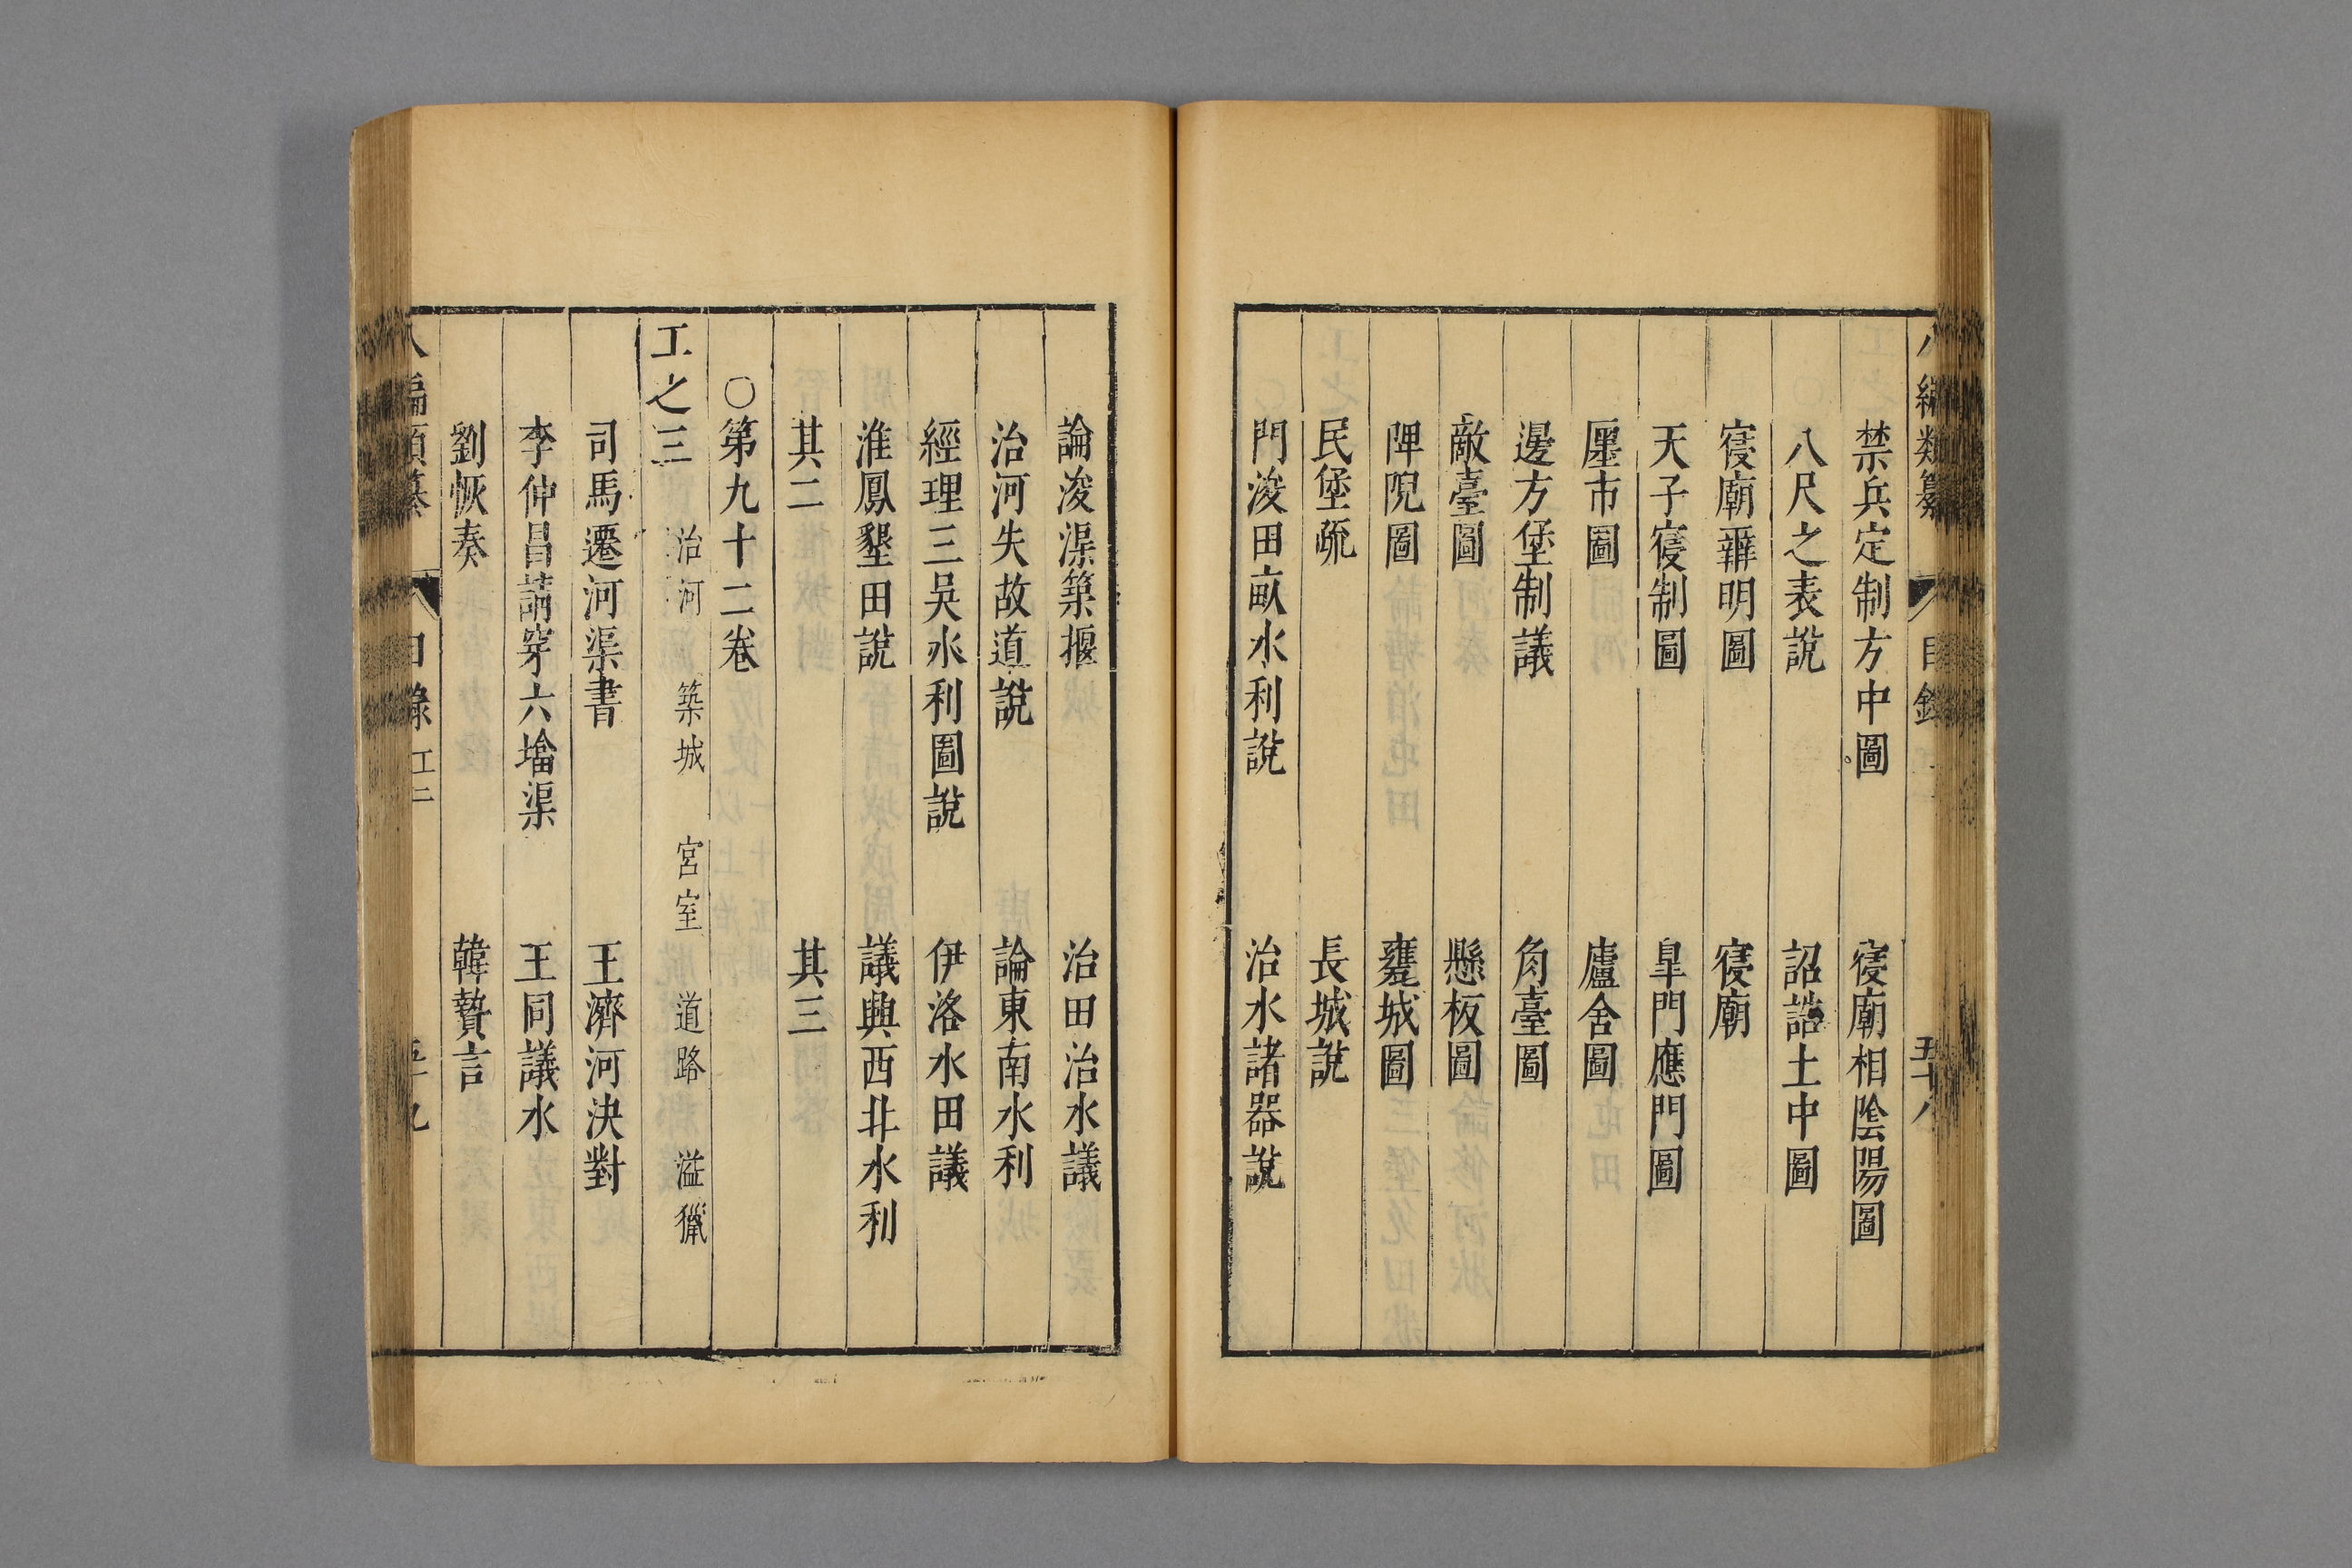 八編類纂 目錄 五十八
禁兵定制方中圖 寑廟相陰陽圖
八尺之表說 詔誥土中圖
寑廟辨明圖 寑廟
天子寑制圖 皐門應門圖
廛市圖 廬舍圖
邊方堡制議 角臺圖
敵臺圖 懸板圖
陴隉圖 甕城圖
民堡疏 長城說
門浚田畝水利說 治水諸器說
論浚渠築堰 治田治水議
治河失故道說 論東南水利
經理三吳水利圖說 伊洛水田議
淮鳳墾田說 議興西北水利
其二 其三
○第九十二卷
工之三 治河 築城 宮室 道路 溢獵
司馬遷河渠書 王濟河決對
李仲昌請穿六墖渠 王同議水
劉恢奏 韓贄言
八編類纂 目錄 工二 五十九